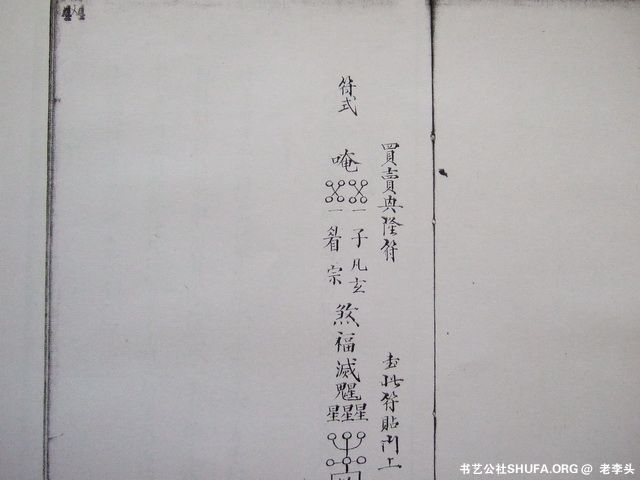 44
買賣興隆符
書此符貼門上
符式
唵
一 一
子 凡 玄
看 宗
煞
福
滅
魁
星星星
书艺公社SHUFA.ORG @ 老李头